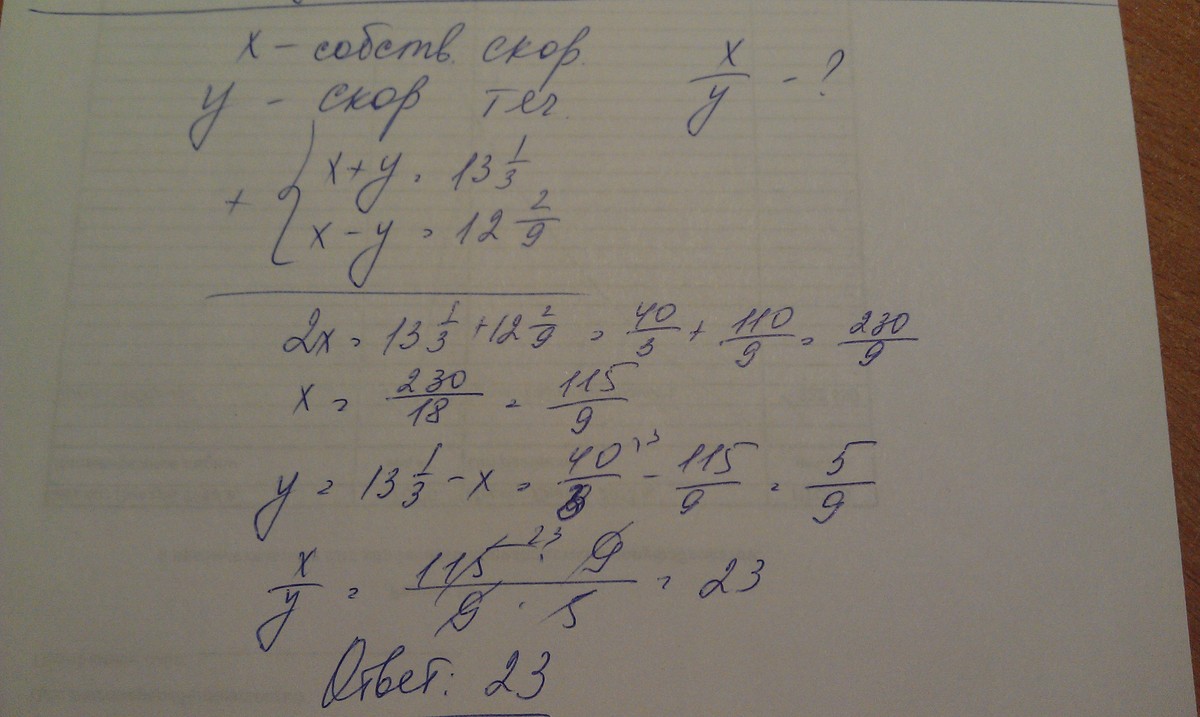 x – собств. скор. x/y – ?
y – скор теч.
+ { x+y = 13 1/3
x – y = 12 2/9
2x = 13 1/3 + 12 2/9 = 40/3 + 110/9 = 230/9
x = 230/18 = 115/9
y = 13 1/3 – x = 40/3 – 115/9 = 5/9
x/y = 115 23 · 9 / 9 · 5 = 23
Ответ: 23